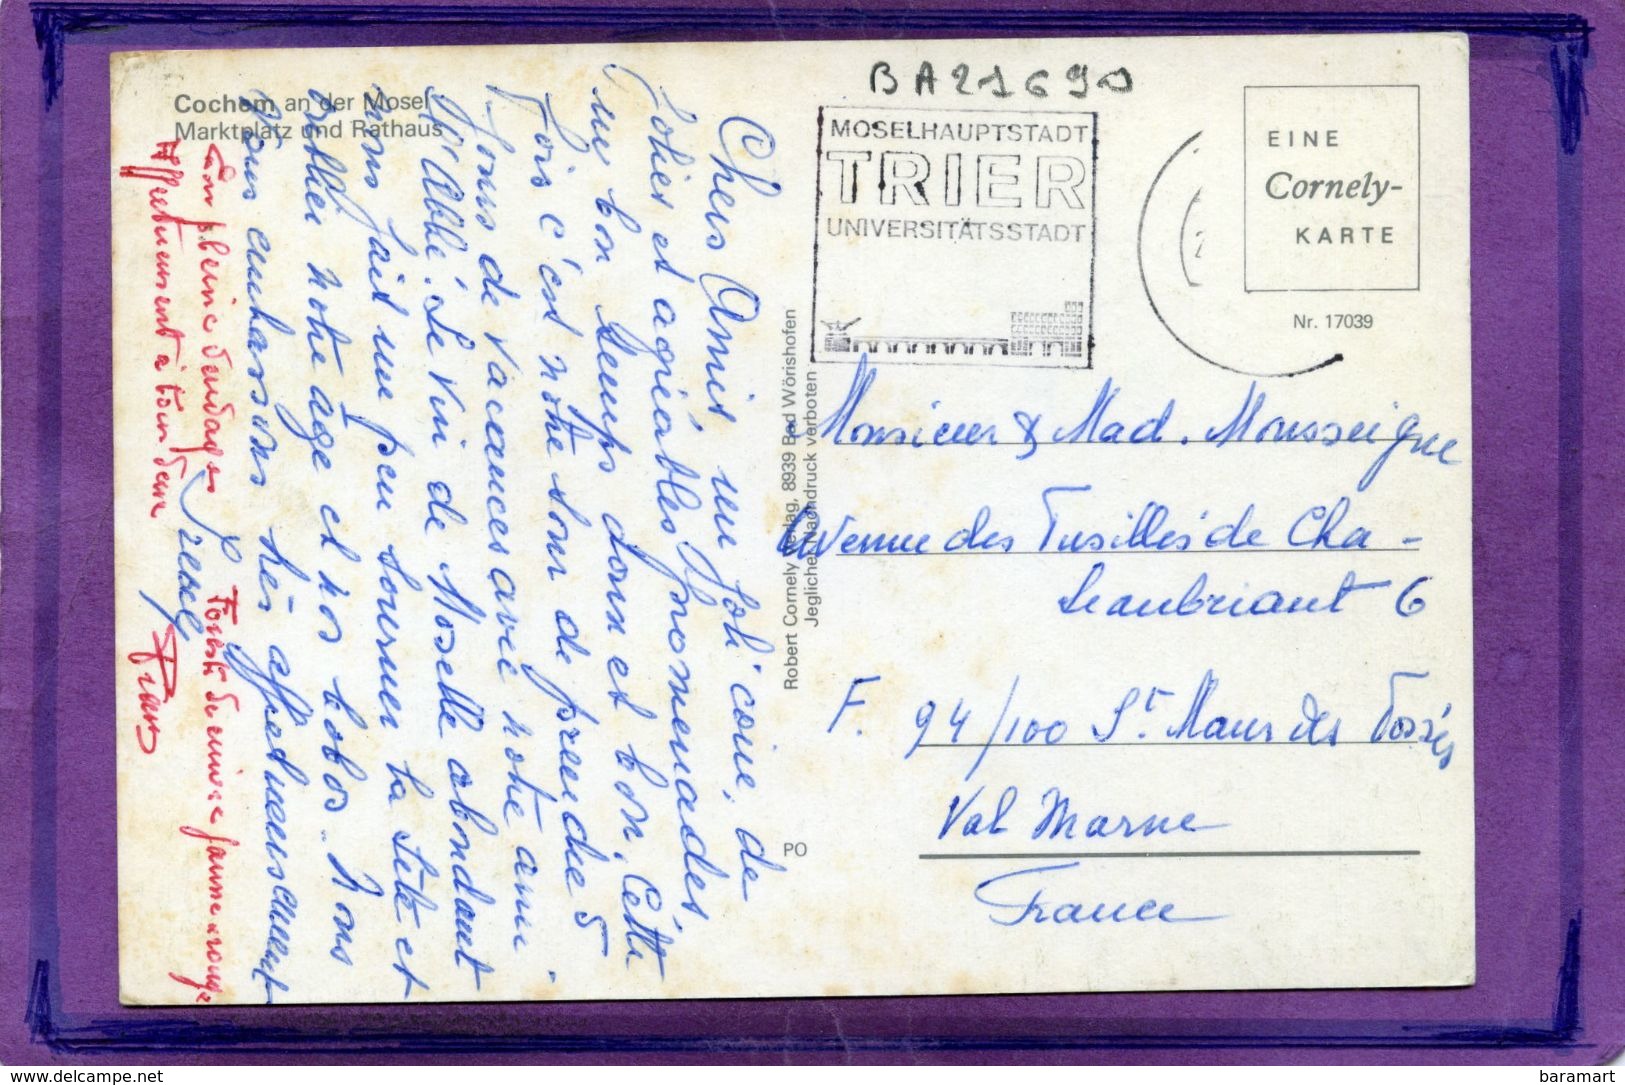 BA21690
Cochem an der Mosel
Marktplatz und Rathaus
MOSELHAUPTSTADT
TRIER
UNIVERSITÄTSSTADT
EINE
Cornely-
KARTE
Nr. 17039
Chers Amis, un joli coin, de
jolies et agréables promenades,
un bon temps, doux et bon. Cette
fois c'est notre tour de prendre 5
jours de vacances avec notre ami
l'Abbé. Le vin de Moselle abondant
nous fait un peu tourner la tête et
oublier notre âge et nos bobos. Nous
vous embrassons très affectueusement
en pleine vendages
Affectueusement à tous deux
Robert Cornely Verlag, 8939 Bad Wörishofen
Jeglicher Nachdruck verboten
PO
Monsieur & Mad. Mousseigne
Avenue des Fusillés de Cha-
teaubriant 6
F. 94/100 St. Maur des Fossés
Val Marne
France
delcampe.net
baramart